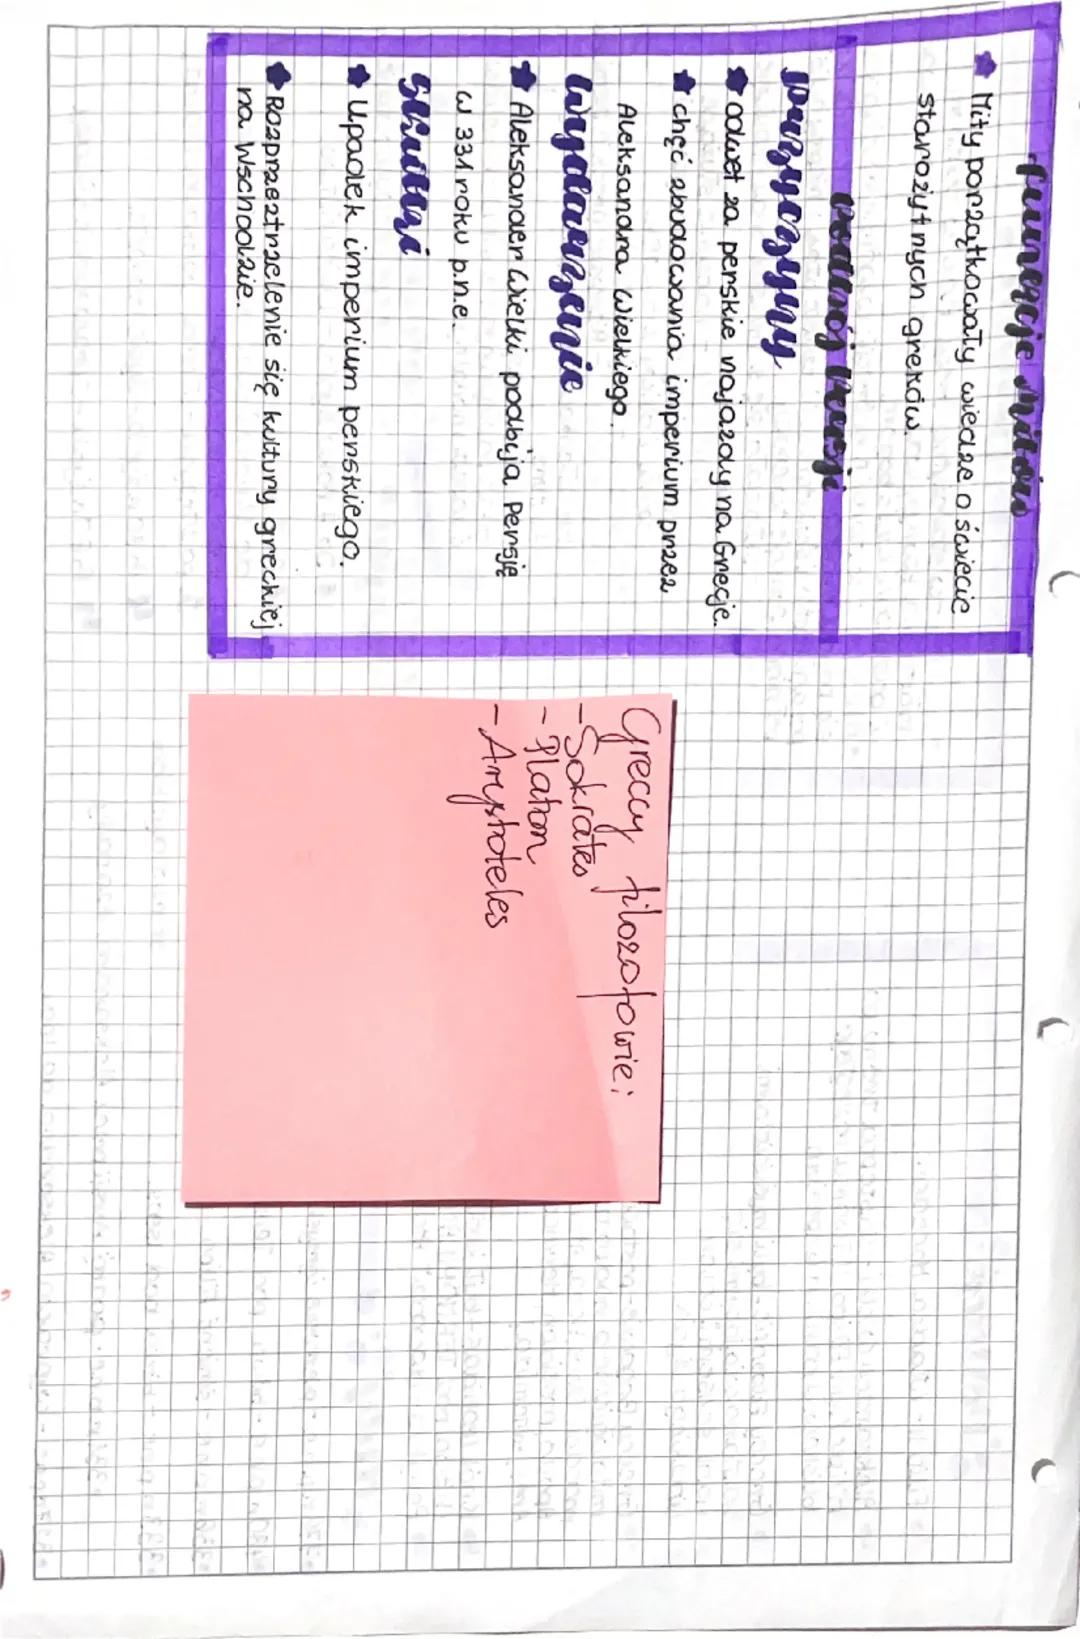 funkcje mitów
Mity porządkowały wiedze o świecie
starożytnych greków.
podbój Persji
przyczyny
odwet za perskie najazdy na Grecje.
chęć zbudowania imperium przez
Aleksandra Wielkiego.
Wydarzenie
Aleksander Wielki podbija Persję
w 331 roku p.n.e.
Skutki
Upadek imperium perskiego.
Rozprzeztrzelenie się kultury greckiej
na Wschodzie.
Greccy filozofowie:
- Sokrates
- Platon
- Arystoteles